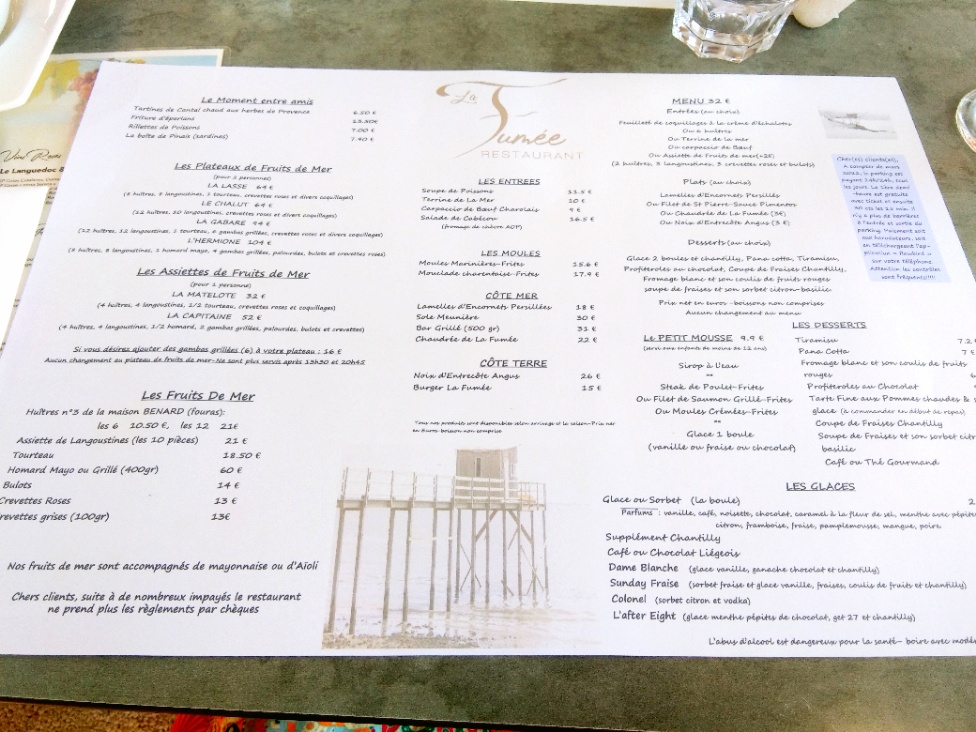 Le Languedoc &
Le Moment entre amis
Tartines de Cantal chaud aux herbes de Provence 6.50 €
Friture d'éperlans 13.50€
Rillettes de Poissons 7.00 €
La boîte de Pinais (sardines) 7.90 €
Les Plateaux de Fruits de Mer
(pour 2 personnes)
LA LASSE 64 €
LE CHALUT 64 €
(12 huîtres, 10 langoustines, crevettes roses et divers coquillages)
LA GABARE 94 €
L'HERMIONE 104 €
Les Assiettes de Fruits de Mer
(pour 1 personne)
LA MATELOTE 32 €
(4 huîtres, 4 langoustines, 1/2 tourteau, crevettes roses et coquillages)
LA CAPITAINE 52 €
(4 huîtres, 4 langoustines, 1/2 homard, 2 gambas grillées, palourdes, bulots et crevettes)
Si vous désirez ajouter des gambas grillées (6) à votre plateau : 16 €
Aucun changement au plateau de fruits de mer-Ne sont plus servis après 13h30 et 20h45
Les Fruits De Mer
Huîtres n°3 de la maison BENARD (fouras):
les 6 10.50 €, les 12 21€
Assiette de Langoustines (les 10 pièces) 21 €
Tourteau 18.50 €
Homard Mayo ou Grillé (400gr) 60 €
Bulots 14 €
Crevettes Roses 13 €
revettes grises (100gr) 13€
Nos fruits de mer sont accompagnés de mayonnaise ou d'Aïoli
Chers clients, suite à de nombreux impayés le restaurant
ne prend plus les règlements par chèques
La Fumée
RESTAURANT
LES ENTREES
Soupe de Poissons 11.5 €
Terrine de La Mer 10 €
Carpaccio de Bœuf Charolais 9 €
Salade de Cabécou 16.5 €
(fromage de chèvre AOP)
LES MOULES
Moules Marinières-Frites 15.6 €
Mouclade charentaise-Frites 17.9 €
CÔTE MER
Lamelles d'Encornets Persillées 18 €
Sole Meunière 30 €
Bar Grillé (500 gr) 31 €
Chaudrée de La Fumée 22 €
CÔTE TERRE
Noix d'Entrecôte Angus 26 €
Burger La Fumée 15 €
Tous nos produits sont disponibles selon arrivage et la saison-Prix net
en Euros-boisson non comprise
MENU 32 €
Entrées (au choix)
Feuilleté de coquillages à la crème d'échalotes
Ou 6 huîtres
Ou Terrine de la mer
Ou carpaccio de Bœuf
Ou Assiette de Fruits de mer(+2€)
(2 huîtres, 3 langoustines, 3 crevettes roses et bulots)
Plats (au choix)
Lamelles d'Encornets Persillés
Ou Filet de St Pierre-Sauce Pimentos
Ou Chaudrée de La Fumée (3€)
Ou Noix d'Entrecôte Angus (3 €)
Desserts (au choix)
Glace 2 boules et chantilly, Pana cotta, Tiramisu,
Profiteroles au chocolat, Coupe de Fraises Chantilly,
Fromage blanc et son coulis de fruits rouges
soupe de fraises et son sorbet citron-basilic
Prix net en euros -boissons non comprises
Aucun changement au menu
Le PETIT MOUSSE 9.9 €
(servi aux enfants de moins de 12 ans)
Sirop à L'eau
**
Steak de Poulet-Frites
Ou Filet de Saumon Grillé-Frites
Ou Moules Crémées-Frites
**
Glace 1 boule
(vanille ou fraise ou chocolat)
Cher(es) cliente(es),
à compter de mars
2022, le parking est
payant 24h/24h, tous
les jours. La 1ère demi
-heure est gratuite
LES DESSERTS
Tiramisu 7.2
Pana Cotta 7 €
Fromage blanc et son coulis de fruits
rouges 6
Profiteroles au Chocolat
Tarte Fine aux Pommes chaudes &
glace (à commander en début de repas)
Coupe de Fraises Chantilly
Soupe de Fraises et son sorbet citro
basilic
Café ou Thé Gourmand
LES GLACES
Glace ou Sorbet (la boule) 2
Parfums : vanille, café, noisette, chocolat, caramel à la fleur de sel, menthe avec pépite
citron, framboise, fraise, pamplemousse, mangue, poire
Supplément Chantilly
Café ou Chocolat Liégeois
Dame Blanche (glace vanille, ganache chocolat et chantilly)
Sunday Fraise (sorbet fraise et glace vanille, fraises, coulis de fruits et chantilly)
Colonel (sorbet citron et vodka)
L'after Eight (glace menthe pépites de chocolat, get 27 et chantilly)
L'abus d'alcool est dangereux pour la santé- boire avec modé